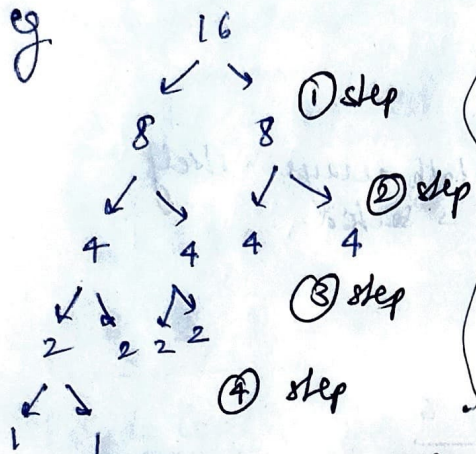 eg 16
① step
8 8
② step
4 4 4 4
③ step
2 2 2 2
④ step
1 1